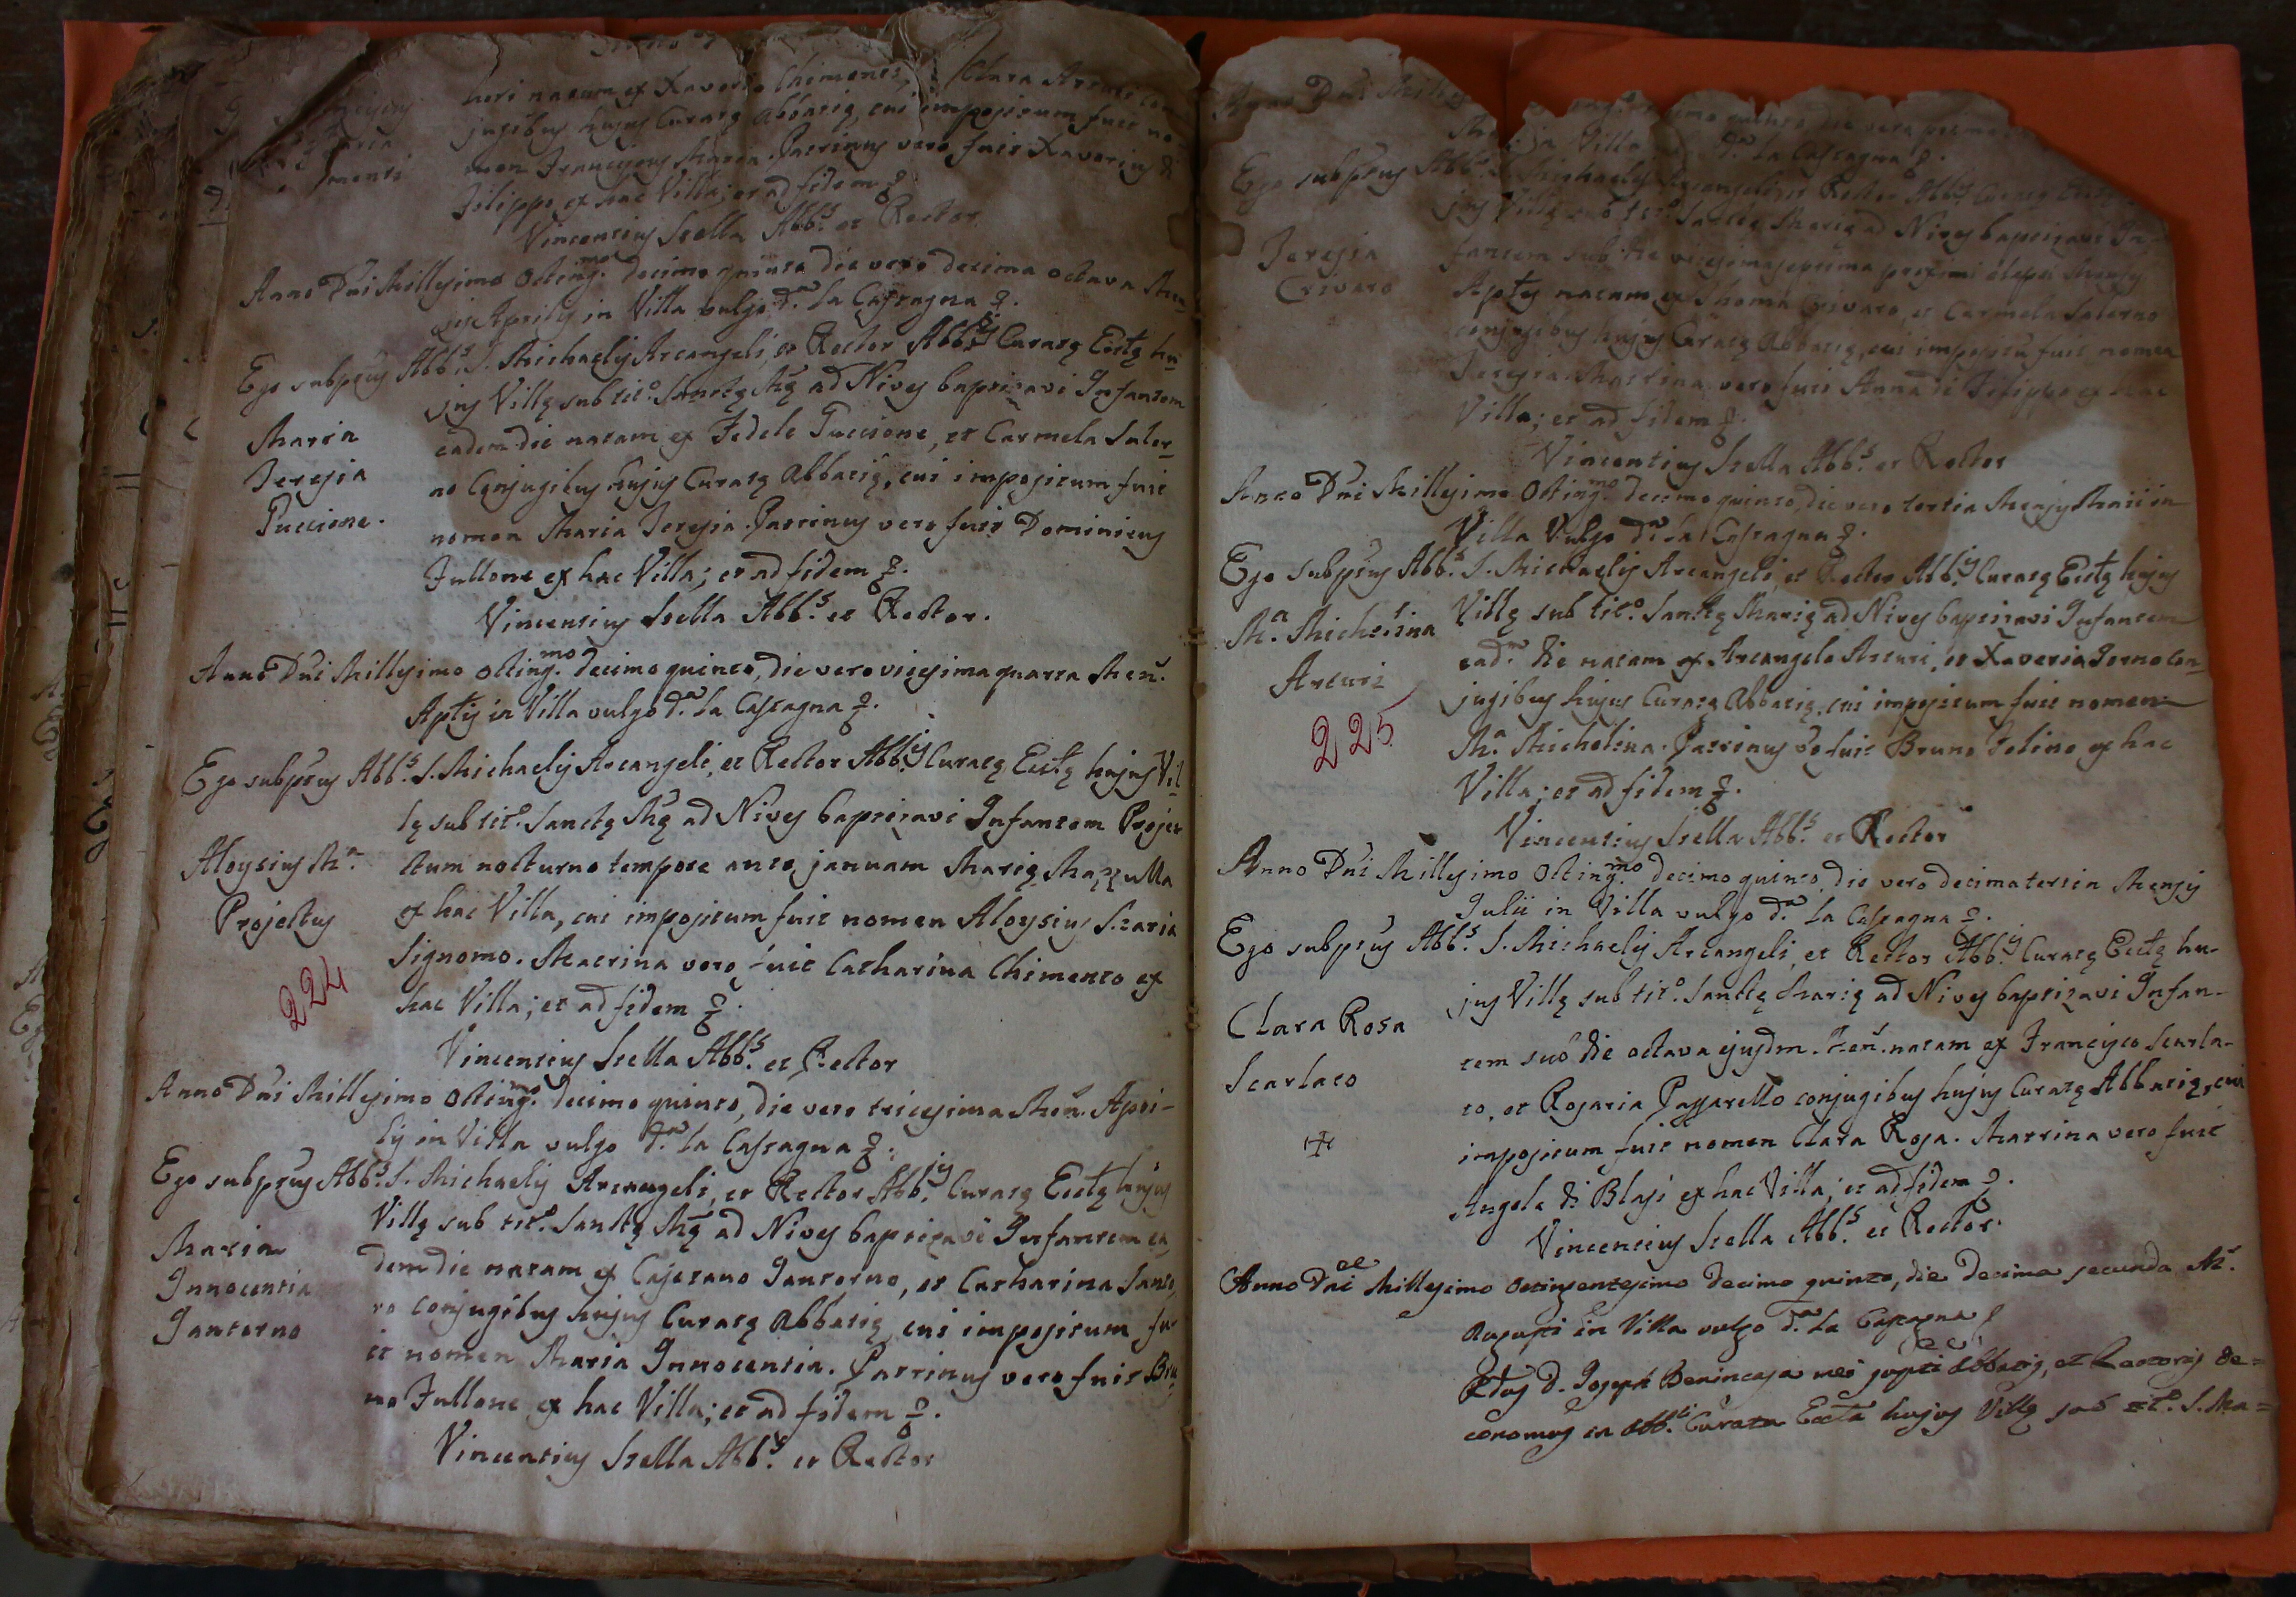 heri natum ex Xaverio Chimenti, Clara Arcuri con
jugibus hujus Curatę Abbatię, cui impositum fuit no
men Franciscus Maria. Patrinus vero fuit Xaverius di
Filippo ex hac Villa; et ad fidem
Vincentius Stella Abb.s et Rector.
Anno Dñi Millesimo Octing.mo decimo quinto die vero decima octava Men
sis Aprilis in Villa vulgo d.a la Castagna
Ego subptus Abb.s S. Michaelis Arcangeli, et Rector Abb.is Curatę Ecctę hu
jus Villę sub tit.o Sanctę Mę ad Nives baptizavi Infantem
Maria
Teresia
Puccione.
eadem die natam ex Fedele Puccione, et Carmela Saler
no Conjugibus hujus Curatę Abbatię, cui impositum fuit
nomen Maria Teresia. Patrinus vero fuit Dominicus
Fullone ex hac Villa; et ad fidem
Vincentius Stella Abb.s et Rector.
Anno Dñi Millesimo Octing.mo decimo quinto, die vero vicesima quarta Men.
Aptis in Villa vulgo d.a la Castagna
Ego subptus Abb.s S. Michaelis Arcangeli, et Rector Abb.is Curatę Ecctę hujus Vil
lę sub tit.o Sanctę Mę ad Nives baptizavi Infantem Proje
Aloysius M.a
Projectus
224
ctum nocturno tempore ante januam Marię Mazzulla
ex hac Villa, cui impositum fuit nomen Aloysius Maria
Signomo. Matrina vero fuit Catharina Chimento ex
hac Villa; et ad fidem
Vincentius Stella Abb.s et Rector
Anno Dñi Millesimo Octing.mo decimo quinto, die vero tricesima Men. Apri-
lis in Villa vulgo d.a la Castagna
Ego subptus Abb.s S. Michaelis Arcangeli, et Rector Abb.is Curatę Ecctę hujus
Villę sub tit.o Sanctę Mę ad Nives baptizavi Infantem ea
Maria
Innocentia
Jantorno
dem die natam ex Cajetano Jantorno, et Catharina Santo
ro conjugibus hujus Curatę Abbatię, cui impositum fu
it nomen Maria Innocentia. Patrinus vero fuit Bru
no Fullone ex hac Villa; et ad fidem
Vincentius Stella Abb.s et Rector
Anno Dñi
in Villa d.a la Castagna
Ego subptus Abb.s S. Michaelis Arcangeli et Rector Abb.is Curatę
jus Villę sub tit.o Sanctę Marię ad Nives baptizavi In
Teresia
Crivaro
fantem sub die vicesimaseptima proximi elapsi Mensis
Aptis natam ex Thoma Crivaro, et Carmela Salerno
conjugibus hujus Curatę Abbatię, cui impositũ fuit nomen
Teresia. Matrina vero fuit Anna di Filippo ex hac
Villa; et ad fidem
Vincentius Stella Abb.s et Rector
Anno Dñi Millesimo Octing.mo decimo quinto, die vero tertia Mensis Maii in
Villa Vulgo d.a la Castagna
Ego subptus Abb.s S. Michaelis Arcangeli, et Rector Abb.is Curatę Ecctę hujus
Villę sub tit.o Sanctę Marię ad Nives baptizavi Infantem
M.a Michelina
Arcuri
225
ead.m die natam ex Arcangelo Arcuri, et Xaveria Torno con
jugibus hujus Curatę Abbatię, cui impositum fuit nomen
M.a Michelina. Patrinus vo fuit Bruno Talino ex hac
Villa; et ad fidem
Vincentius Stella Abb.s et Rector
Anno Dñi Millesimo Octing.mo decimo quinto, die vero decimatertia Mensis
Julii in Villa vulgo d.a la Castagna
Ego subptus Abb.s S. Michaelis Arcangeli, et Rector Abb.is Curatę Ecctę hu-
jus Villę sub tit.o Sanctę Marię ad Nives baptizavi Infan-
Clara Rosa
Scarlato
tem sub die octava ejusdm. Meñ. natam ex Francisco Scarla-
to, et Rosaria Passarello conjugibus hujus Curatę Abbatię, cui
impositum fuit nomen Clara Rosa. Matrina vero fuit
Angela di Blasi ex hac Villa; et ad fidem
Vincentius Stella Abb.s et Rector.
Anno Dñi Millesimo Octingentesimo decimo quinto, die decima secunda M.
Augusti in Villa vulgo d.a la Castagna
D. Joseph Benincasa Abbatis, et Rectoris oe=
conomus in Abb.li Curata Eccta hujus Villę sub tit.o S. Ma=